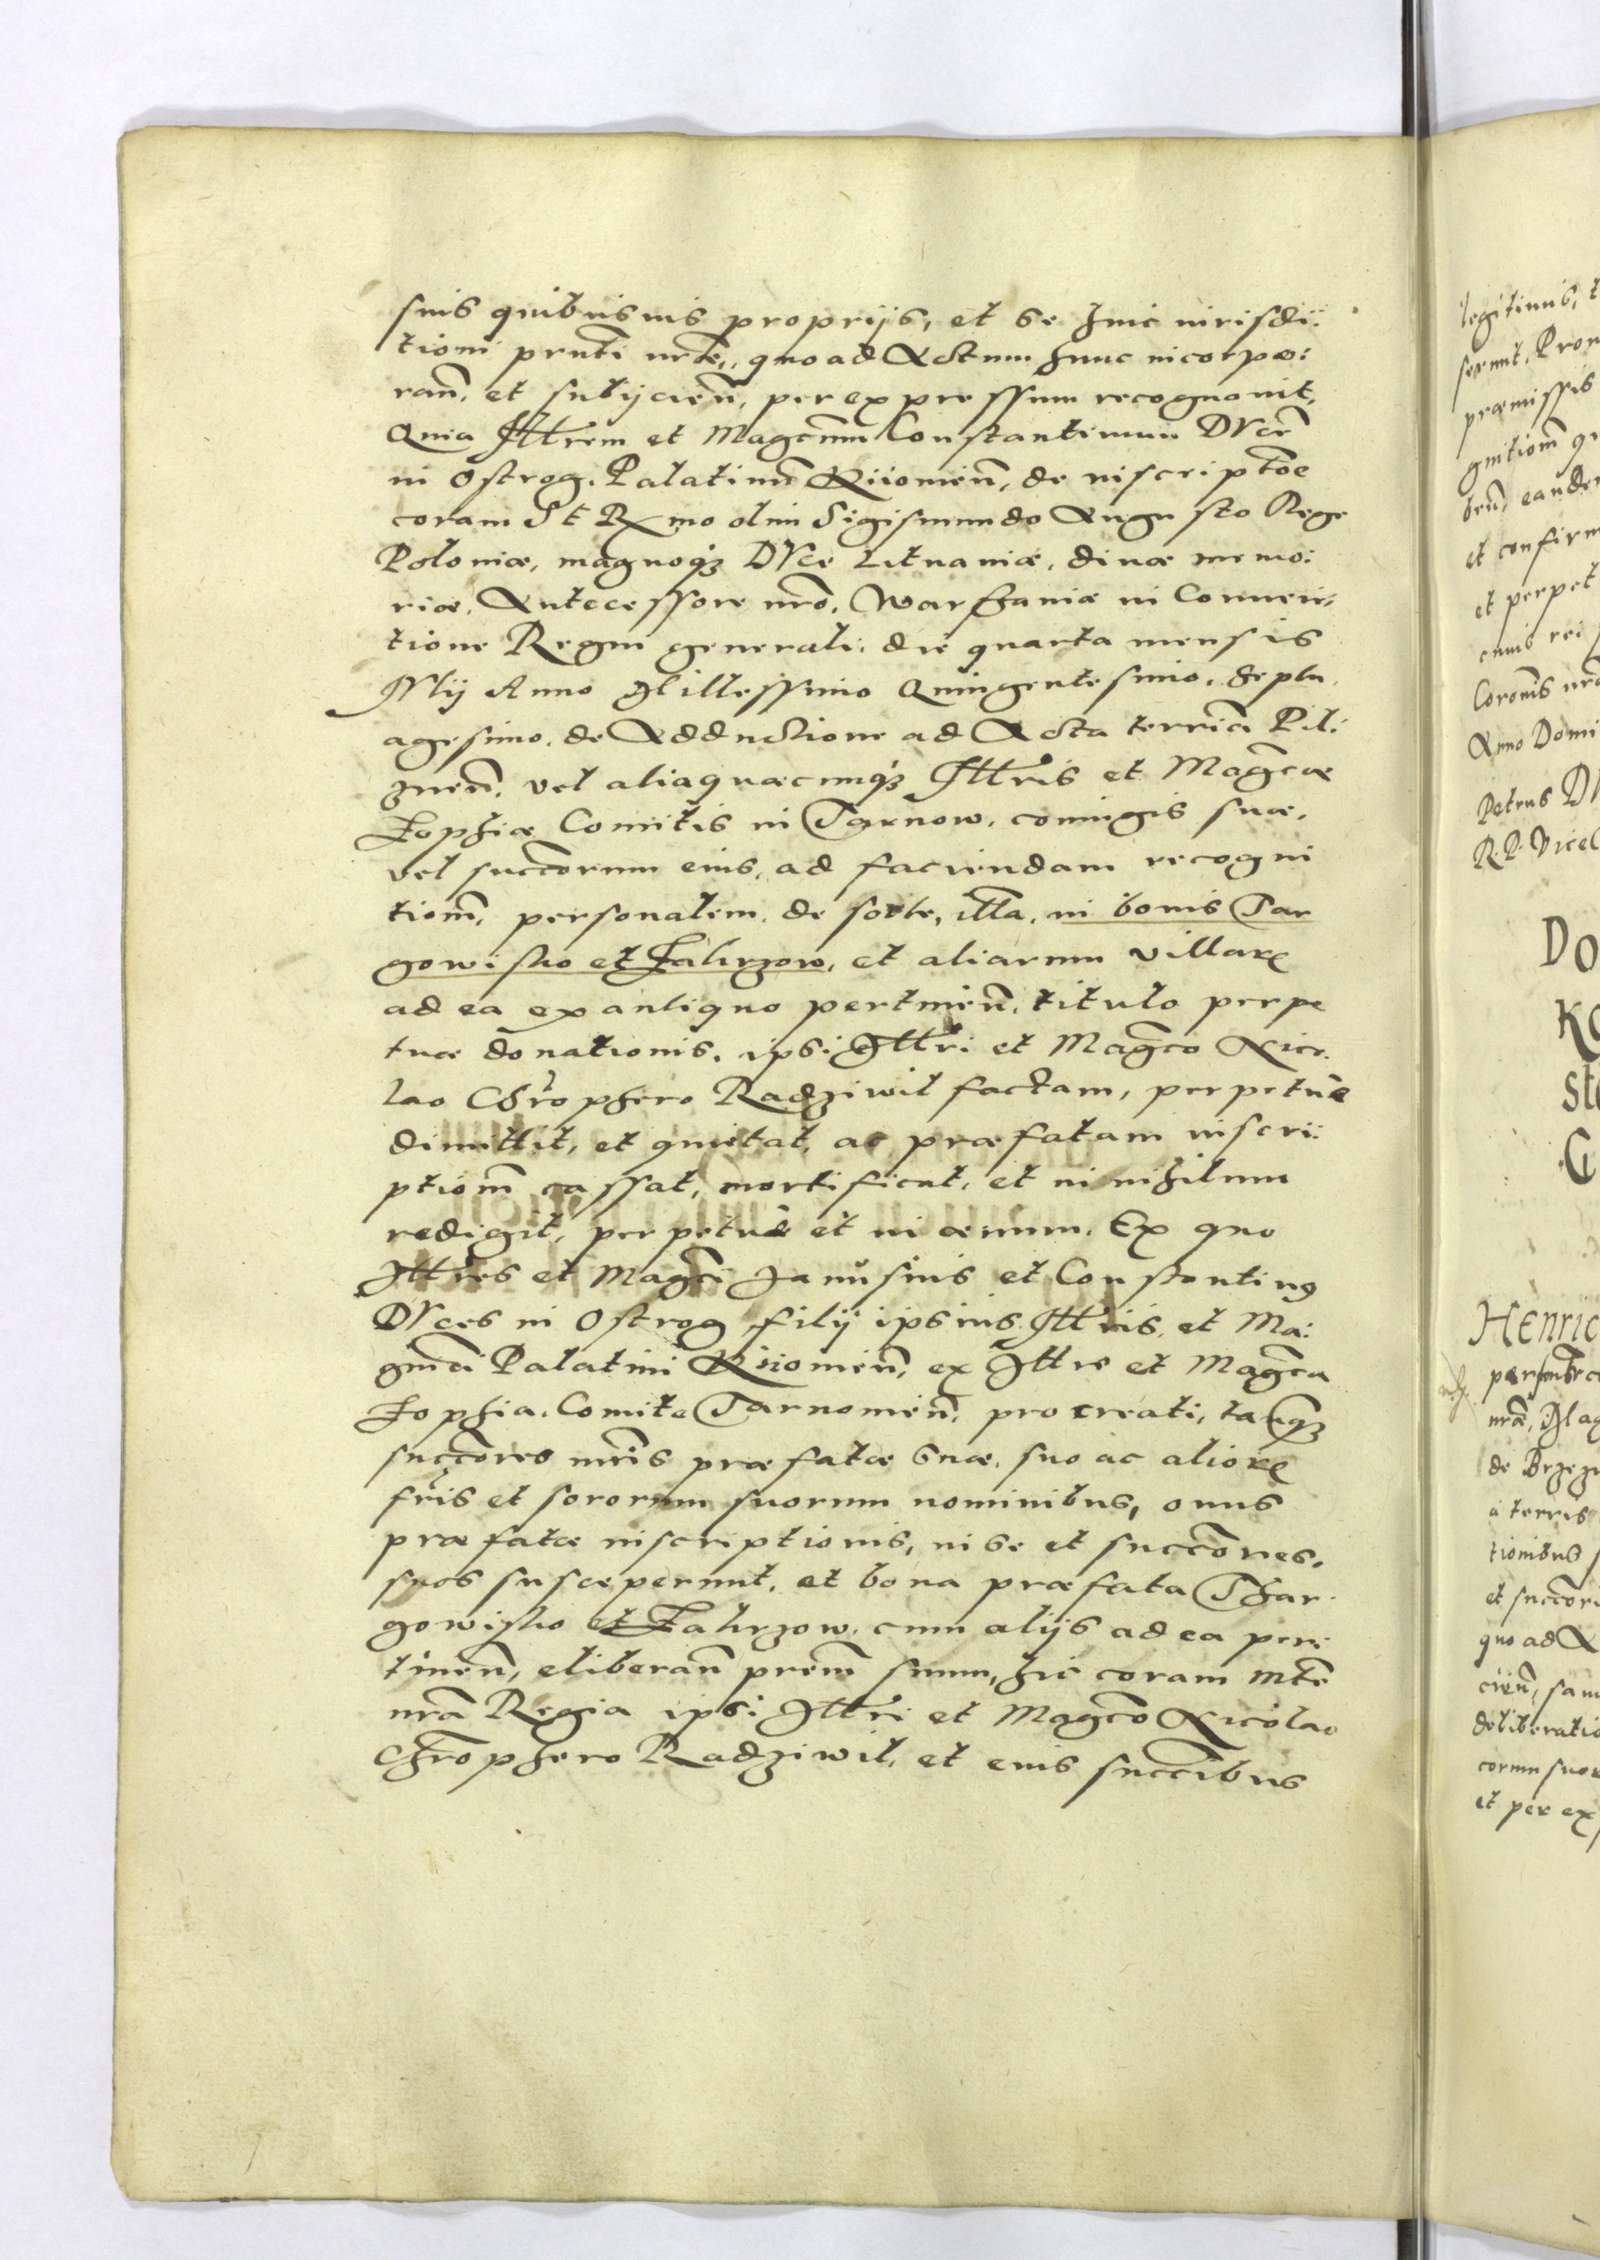 suis quibusuis proprijs, et se huic iurisdi:
tioni prnti nrae, quo ad Actum hunc incorpo:
ran. et subijcien. per expressum recognouit,
Quia Illrem et Magcum Constantinum Ducem
in Ostrog. Palatinum Kiiouien, de inscriptoe
coram St Rx mo olim Sigismundo Augusto Rege
Poloniae, magnoq3 Duce Lituaniae, diuae memo:
riae, Antecessore nro, Warshauiae in Conuen:
tione Regni generali, die quarta mensis
Iulij Anno Millessimo Quingentesimo, septu
agesimo, de Adductione ad Acta terria Pil:
znen. vel aliaquaecunq3 Illris et Magcae
Zophiae Comitis in Tarnow, coniugis suae,
vel succorum eius, ad faciendam recogni
tiom, personalem, de sorte, illa, in bonis Tar
gowisko et Zakrzow, et aliarum villarx
ad ea ex antiquo pertinen, titulo perpe
tuae donationis, ipsi Illri et Magco Nico:
lao Chrophero Radziwil factam, perpetue
dimittit, et quietat, ac praefatam inscri:
ptiom cassat, mortificat, et in nihilum
redigit, perpetue et in aeuum. Ex quo
Illres et Magci Janusius et Constantin9
Duces in Ostrog filij ipsius Illris et Ma:
gnci Palatini Kiiouien, ex Illre et Magca
Zophia, Comite Tarnouien, procreati, tanq3
succores mris praefatae suae, suo ac aliorx
fris et sororum suorum nominibus, onus
praefatae inscriptionis, in se et succores,
suos susceperunt, et bona praefata Thar
gowisko et Zakrzow, cum alijs ad ea per:
tinen, eliberan prem suum, hic coram Mte
nra Regia ipsi Illri et Magco Nicolao
Chrophero Radziwil, et eius succibus
legitimis,
serunt. Pron
praemissis
gnitiom
ben, eander
et confirm
et perpet
cuius rei
Coronis
Anno Domi
Petrus
R. P. Vicec
Do
Ko
st
Henric
nrae, Mag
de Brzezi
a terris
tionibus
et succori
quo ad A
cien, sam
deliberatio
corum suor
et per ex